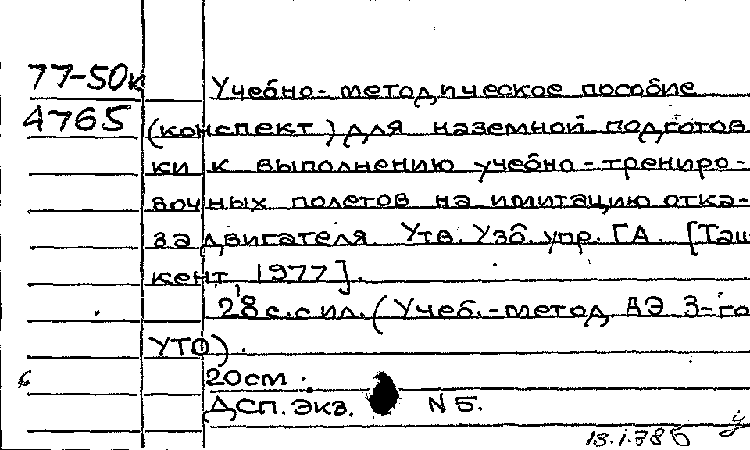 77-50к
4765
Учебно-методическое пособие
(конспект) для наземной подготов
ки к выполнению учебно-трениро-
вочных полетов на имитацию отка-
за двигателя. Утв. Узб. упр. ГА. [Таш
кент, 1977].
28 с. с ил. (Учеб.-метод АЭ 3-го
УТО).
20 см.
ДСП. Экз. N 5.
13.1.78б